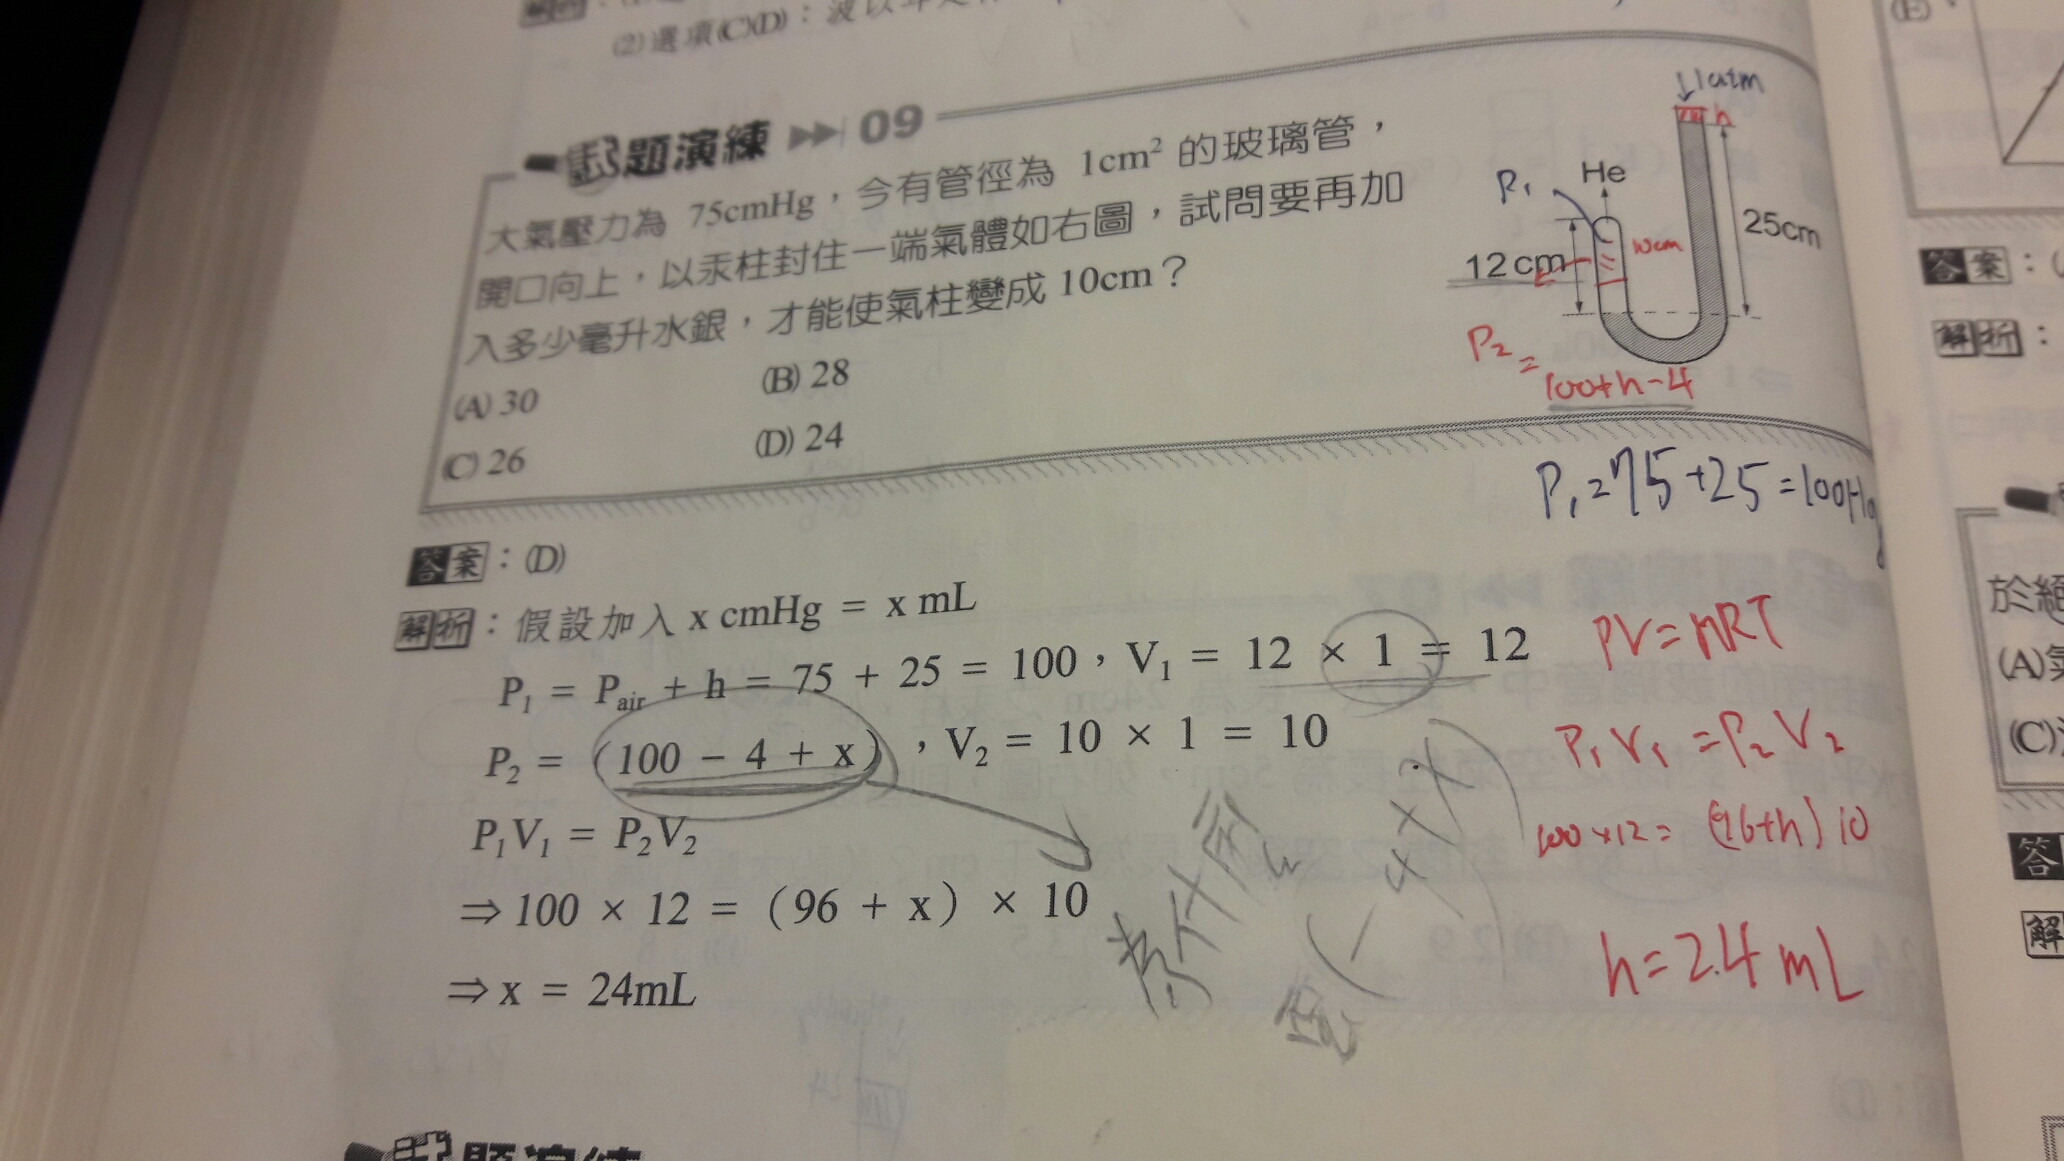 (2)選項(C)(D)：波以耳定
試題演練 ▶▶ 09
大氣壓力為 75cmHg，今有管徑為 1cm² 的玻璃管，
開口向上，以汞柱封住一端氣體如右圖，試問要再加
入多少毫升水銀，才能使氣柱變成 10cm？
(A) 30
(B) 28
(C) 26
(D) 24
↓1atm
h
He
P₁
25cm
10cm
12cm
P₂ =
100+h-4
P₁=75+25=100Hg
答案：(D)
解析：假設加入 x cmHg = x mL
P₁ = Pair + h = 75 + 25 = 100，V₁ = 12 × 1 = 12
P₂ = (100 − 4 + x)，V₂ = 10 × 1 = 10
P₁V₁ = P₂V₂
⇒ 100 × 12 = (96 + x) × 10
⇒ x = 24mL
PV=nRT
P₁V₁ = P₂V₂
100×12= (96+h)10
h=2.4 mL
試題演練
(E)
答案：(
解析：
於絕
(A)氣
(C)
答
解